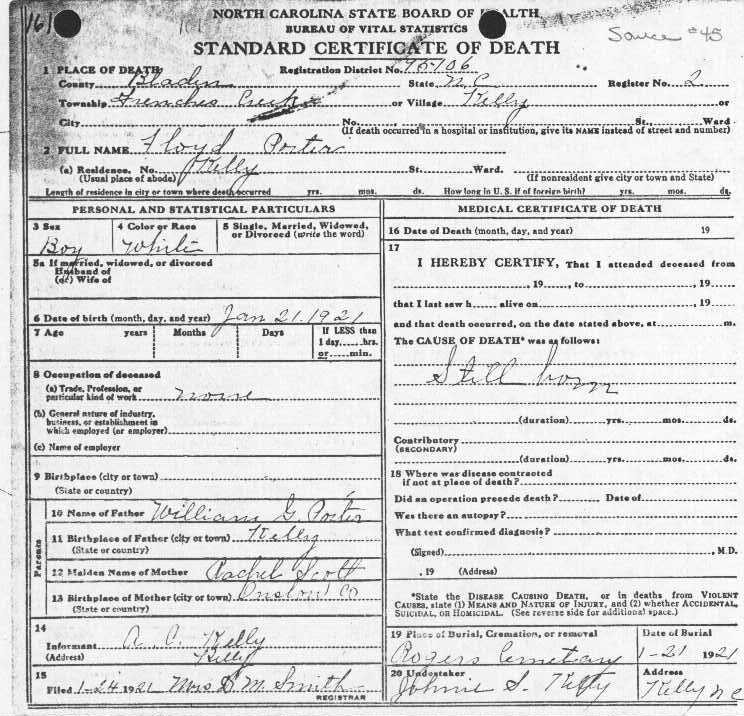 161
NORTH CAROLINA STATE BOARD OF HEALTH
BUREAU OF VITAL STATISTICS
STANDARD CERTIFICATE OF DEATH
Source #45
1 PLACE OF DEATH Registration District No. 95106
County Bladen State N C Register No. 2
Township Frenches Creek or Village Kelly or
City No. St. Ward
(If death occurred in a hospital or institution, give its NAME instead of street and number)
2 FULL NAME Floyd Porter
(a) Residence. No. Kelly St. Ward.
(Usual place of abode) (If nonresident give city or town and State)
Length of residence in city or town where death occurred yrs. mos. ds. How long in U. S. if of foreign birth? yrs. mos. ds.
PERSONAL AND STATISTICAL PARTICULARS
3 Sex 4 Color or Race 5 Single, Married, Widowed, or Divorced (write the word)
Boy White
5a If married, widowed, or divorced
Husband of
(or) Wife of
6 Date of birth (month, day, and year) Jan 21. 1921
7 Age years Months Days If LESS than
1 day......hrs.
or......min.
8 Occupation of deceased
(a) Trade, Profession, or
particular kind of work none
(b) General nature of industry,
business, or establishment in
which employed (or employer)
(c) Name of employer
9 Birthplace (city or town)
(State or country)
Parents
10 Name of Father William G Porter
11 Birthplace of Father (city or town) Kelly
(State or country)
12 Maiden Name of Mother Rachel Scott
13 Birthplace of Mother (city or town) Onslow Co
(State or country)
14
Informant A. C. Kelly
(Address) Kelly
15
Filed 1-24 1921 Mrs D. M. Smith
REGISTRAR
MEDICAL CERTIFICATE OF DEATH
16 Date of Death (month, day, and year) 19
17
I HEREBY CERTIFY, That I attended deceased from
, 19 , to , 19
that I last saw h alive on , 19
and that death occurred, on the date stated above, at m.
The CAUSE OF DEATH* was as follows:
Still born
(duration) yrs. mos. ds.
Contributory
(SECONDARY)
(duration) yrs. mos. ds.
18 Where was disease contracted
if not at place of death?
Did an operation precede death? Date of
Was there an autopsy?
What test confirmed diagnosis?
(Signed) , M.D.
, 19 (Address)
*State the DISEASE CAUSING DEATH, or in deaths from VIOLENT
CAUSES, state (1) MEANS AND NATURE OF INJURY, and (2) whether ACCIDENTAL,
SUICIDAL, OR HOMICIDAL. (See reverse side for additional space.)
19 Place of Burial, Cremation, or removal Date of Burial
Rogers Cemetary 1-21 1921
20 Undertaker Address
Johnie S. Kelly Kelly N C